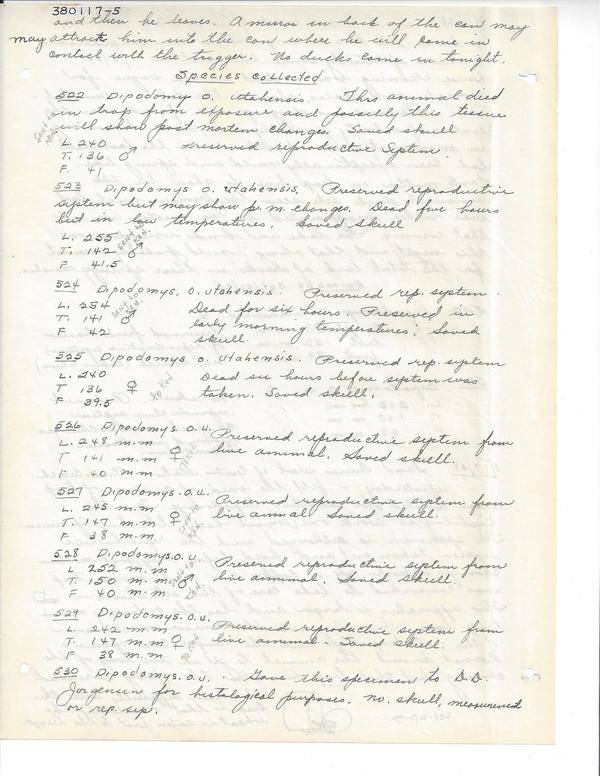 380117-5
and then he leaves. A mirror in back of the can may
may attract him into the can where he will come in
contact with the trigger. No ducks came in tonight.
Species collected
522 Dipodomys O. utahensis. This animal died
in trap from exposure and possibly this tissue
will show post mortem changes. Saved skull
Preserved reproductive System.
sent to Ken.
L. 240
T. 136 ♂
F. 41
523 Dipodomys o. utahensis. Preserved reproductive
system but may show p.m. changes. Dead five hours
but in low temperatures. Saved skull
L. 255
T. 142 ♂
F 41.5
sent to Ken.
524 Dipodomys. o. utahensis. Preserved rep. system.
Dead for six hours. Preserved in
early morning temperatures; Saved
skull.
L. 254
T. 141 ♂
F 42
sent to Ken.
525 Dipodomys o. utahensis. Preserved rep. system
Dead six hours before system was
taken. Saved skull.
L. 240
T 136 ♀
F 39.5
to Ken
526 Dipodomys. o. u. Preserved reproductive system from
live animal. Saved skull.
L. 248 m.m
T 141 m.m ♀
F 40 m.m
527 Dipodomys. o. u. Preserved reproductive system from
live animal Saved skull.
L. 245 m.m
T. 147 m.m ♀
F 38 m.m
sent to Ken.
528 Dipodomys. o. u. Preserved reproductive system from
live animal. Saved skull.
L 252 m.m
T. 150 m.m ♂
F 40 m.m
sent to Ken.
529 Dipodomys. o. u. Preserved reproductive system from
live animal. Saved skull.
L. 242 m.m
T. 147 m.m ♀
F 38 m.m
to Ken
530 Dipodomys. o. u. Gave this specimen to D.D.
Jorgensen for histological purposes. no. skull, measurement
or rep. sys.